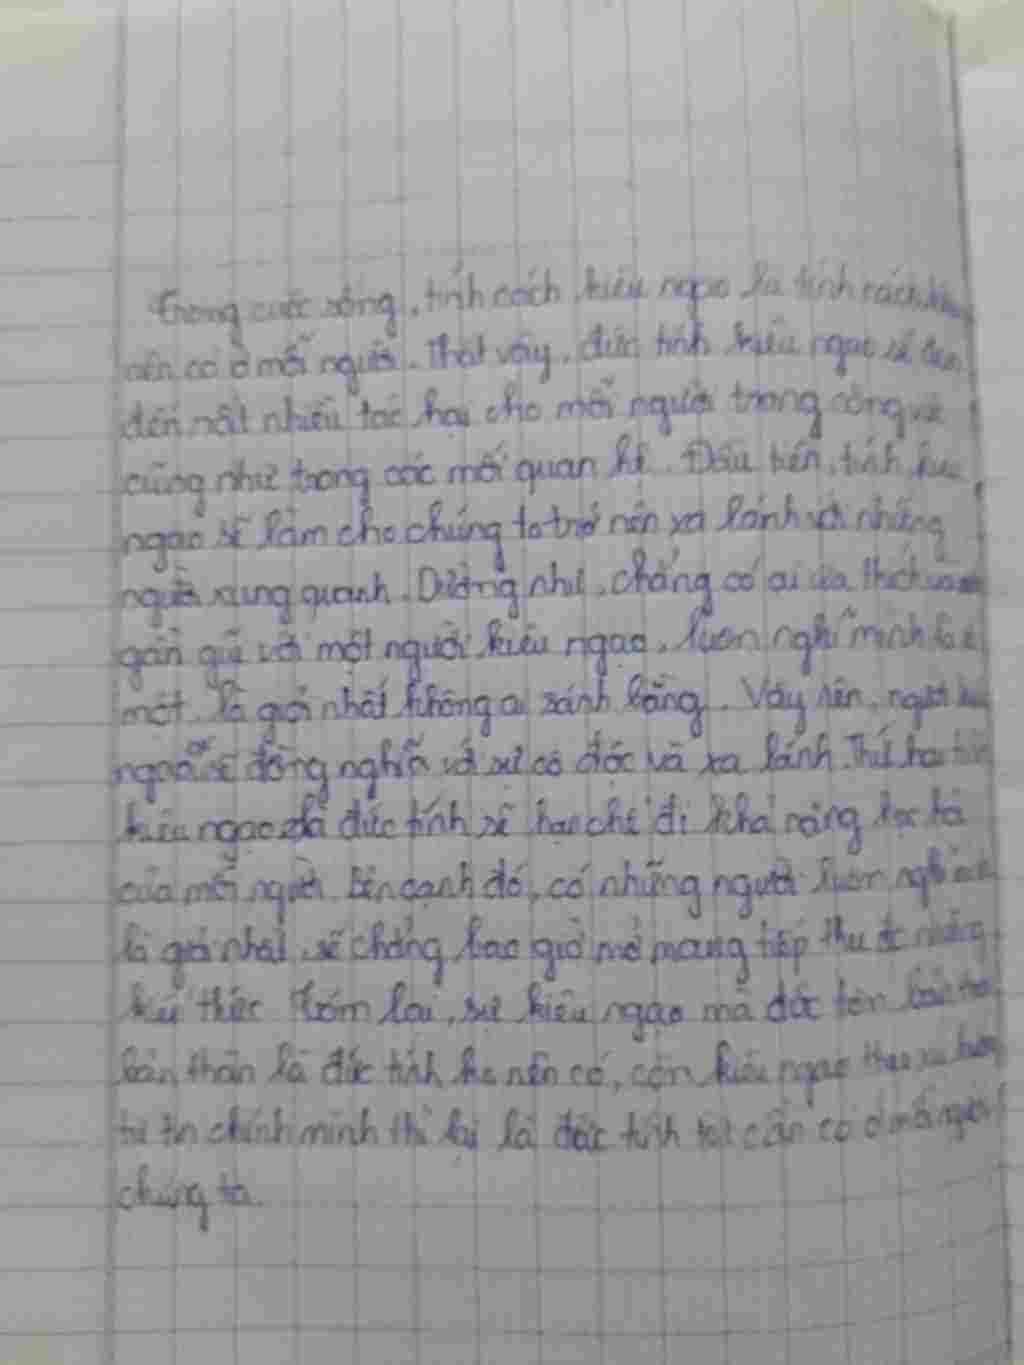 Trong cuộc sống, tính cách kiêu ngạo là tính cách
nên có ở mỗi người. Thật vậy, đức tính kiêu ngạo sẽ
đến rất nhiều tác hại cho mỗi người trong công
cũng như trong các mối quan hệ. Đầu tiên, tính
ngạo sẽ làm cho chúng ta trở nên xa lánh với những
người xung quanh. Dường như, chẳng có ai ưa thích
gần gũi với một người kiêu ngạo, luôn nghĩ mình là
một, là giỏi nhất không ai sánh bằng. Vậy nên, người
ngạo sẽ đồng nghĩa với sự cô độc và xa lánh. Thứ hai
kiêu ngạo là đức tính sẽ hạn chế đi khả năng học
của mỗi người. Bên cạnh đó, có những người luôn nghĩ
là giỏi nhất, sẽ chẳng bao giờ mở mang tiếp thu những
thức. Tóm lại, sự kiêu ngạo mà
bản thân là đức tính ko nên có, còn kiêu ngạo theo
tự tin chính mình thì lại là đức tính tốt cần có ở mỗi người
chúng ta.